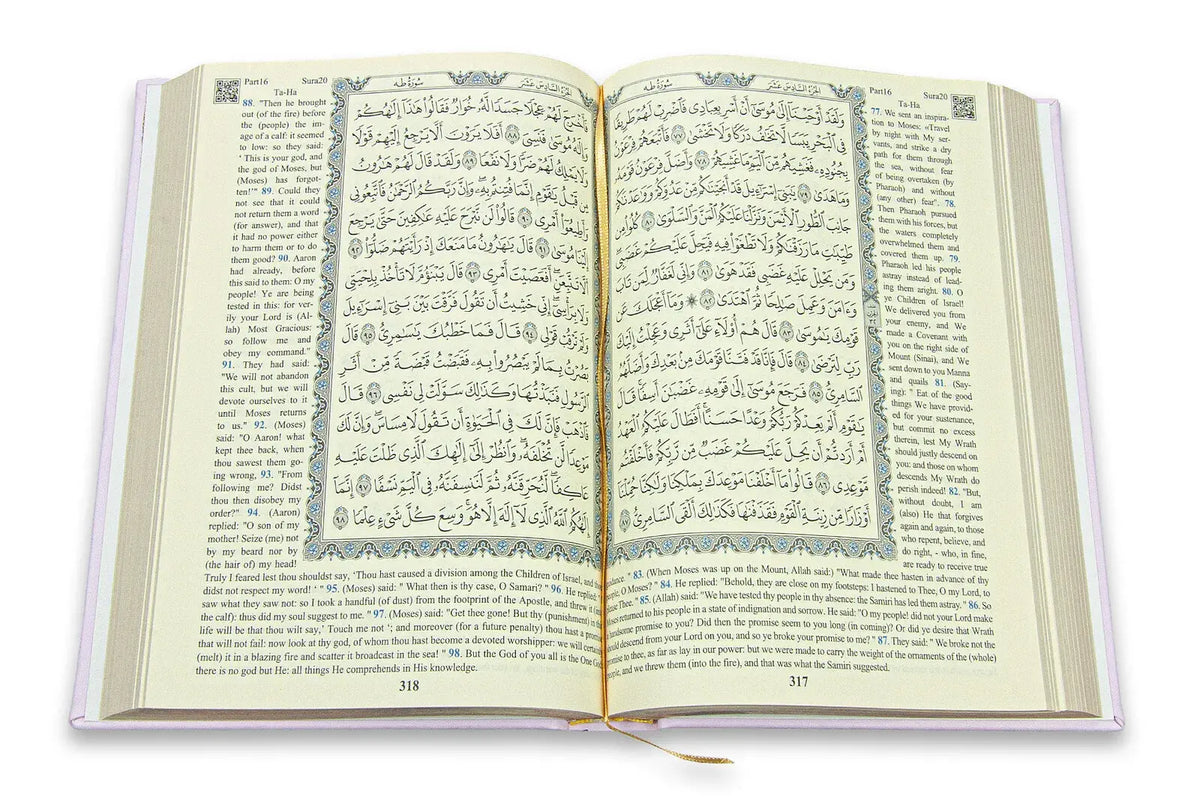 Part16 Sura20
Ta-Ha
سُورَةُ طه
الجُزءُ السَّادِسَ عَشَرَ
وَلَقَدْ أَوْحَيْنَا إِلَىٰ مُوسَىٰ أَنْ أَسْرِ بِعِبَادِي فَاضْرِبْ لَهُمْ طَرِيقًا
فِي الْبَحْرِ يَبَسًا لَا تَخَافُ دَرَكًا وَلَا تَخْشَىٰ ٧٧ فَأَتْبَعَهُمْ فِرْعَوْنُ
بِجُنُودِهِ فَغَشِيَهُم مِّنَ الْيَمِّ مَا غَشِيَهُمْ ٧٨ وَأَضَلَّ فِرْعَوْنُ قَوْمَهُ
وَمَا هَدَىٰ ٧٩ يَٰبَنِي إِسْرَٰءِيلَ قَدْ أَنجَيْنَٰكُم مِّنْ عَدُوِّكُمْ وَوَٰعَدْنَٰكُمْ
جَانِبَ الطُّورِ الْأَيْمَنَ وَنَزَّلْنَا عَلَيْكُمُ الْمَنَّ وَالسَّلْوَىٰ ٨٠ كُلُوا مِن
طَيِّبَٰتِ مَا رَزَقْنَٰكُمْ وَلَا تَطْغَوْا فِيهِ فَيَحِلَّ عَلَيْكُمْ غَضَبِي
وَمَن يَحْلِلْ عَلَيْهِ غَضَبِي فَقَدْ هَوَىٰ ٨١ وَإِنِّي لَغَفَّارٌ لِّمَن تَابَ
وَءَامَنَ وَعَمِلَ صَٰلِحًا ثُمَّ اهْتَدَىٰ ٨٢ وَمَا أَعْجَلَكَ عَن
قَوْمِكَ يَٰمُوسَىٰ ٨٣ قَالَ هُمْ أُولَاءِ عَلَىٰ أَثَرِي وَعَجِلْتُ إِلَيْكَ
رَبِّ لِتَرْضَىٰ ٨٤ قَالَ فَإِنَّا قَدْ فَتَنَّا قَوْمَكَ مِنۢ بَعْدِكَ وَأَضَلَّهُمُ
السَّامِرِيُّ ٨٥ فَرَجَعَ مُوسَىٰ إِلَىٰ قَوْمِهِ غَضْبَٰنَ أَسِفًا قَالَ
يَٰقَوْمِ أَلَمْ يَعِدْكُمْ رَبُّكُمْ وَعْدًا حَسَنًا أَفَطَالَ عَلَيْكُمُ الْعَهْدُ
أَمْ أَرَدتُّمْ أَن يَحِلَّ عَلَيْكُمْ غَضَبٌ مِّن رَّبِّكُمْ فَأَخْلَفْتُم
مَّوْعِدِي ٨٦ قَالُوا مَا أَخْلَفْنَا مَوْعِدَكَ بِمَلْكِنَا وَلَٰكِنَّا حُمِّلْنَا
أَوْزَارًا مِّن زِينَةِ الْقَوْمِ فَقَذَفْنَٰهَا فَكَذَٰلِكَ أَلْقَى السَّامِرِيُّ ٨٧
77. We sent an inspira-
tion to Moses: «Travel
by night with My ser-
vants, and strike a dry
path for them through
the sea, without fear
of being overtaken (by
Pharaoh) and without
(any other) fear". 78.
Then Pharaoh pursued
them with his forces, but
the waters completely
overwhelmed them and
covered them up. 79.
Pharaoh led his people
astray instead of lead-
ing them aright. 80. O
ye Children of Israel!
We delivered you from
your enemy, and We
made a Covenant with
you on the right side of
Mount (Sinai), and We
sent down to you Manna
and quails 81. (Say-
ing): " Eat of the good
things We have provid-
ed for your sustenance,
but commit no excess
therein, lest My Wrath
should justly descend on
you: and those on whom
descends My Wrath do
perish indeed! 82. "But,
without doubt, I am
(also) He that forgives
again and again, to those
who repent, believe, and
do right, - who, in fine,
are ready to receive true
guidance. " 83. (When Moses was up on the Mount, Allah said:) "What made thee hasten in advance of thy
people, O Moses? " 84. He replied: "Behold, they are close on my footsteps: I hastened to Thee, O my Lord, to
please Thee. " 85. (Allah) said: "We have tested thy people in thy absence: the Samiri has led them astray." 86. So
Moses returned to his people in a state of indignation and sorrow. He said: "O my people! did not your Lord make
a handsome promise to you? Did then the promise seem to you long (in coming)? Or did ye desire that Wrath
should descend from your Lord on you, and so ye broke your promise to me? " 87. They said: " We broke not the
promise to thee, as far as lay in our power: but we were made to carry the weight of the ornaments of the (whole)
people, and we threw them (into the fire), and that was what the Samiri suggested.
317
Part16 Sura20
Ta-Ha
سُورَةُ طه
الجُزءُ السَّادِسَ عَشَرَ
فَأَخْرَجَ لَهُمْ عِجْلًا جَسَدًا لَّهُ خُوَارٌ فَقَالُوا هَٰذَا إِلَٰهُكُمْ
وَإِلَٰهُ مُوسَىٰ فَنَسِيَ ٨٨ أَفَلَا يَرَوْنَ أَلَّا يَرْجِعُ إِلَيْهِمْ قَوْلًا
وَلَا يَمْلِكُ لَهُمْ ضَرًّا وَلَا نَفْعًا ٨٩ وَلَقَدْ قَالَ لَهُمْ هَٰرُونُ
مِن قَبْلُ يَٰقَوْمِ إِنَّمَا فُتِنتُم بِهِ وَإِنَّ رَبَّكُمُ الرَّحْمَٰنُ فَاتَّبِعُونِي
وَأَطِيعُوا أَمْرِي ٩٠ قَالُوا لَن نَّبْرَحَ عَلَيْهِ عَٰكِفِينَ حَتَّىٰ يَرْجِعَ
إِلَيْنَا مُوسَىٰ ٩١ قَالَ يَٰهَٰرُونُ مَا مَنَعَكَ إِذْ رَأَيْتَهُمْ ضَلُّوا ٩٢
أَلَّا تَتَّبِعَنِ أَفَعَصَيْتَ أَمْرِي ٩٣ قَالَ يَبْنَؤُمَّ لَا تَأْخُذْ بِلِحْيَتِي
وَلَا بِرَأْسِي إِنِّي خَشِيتُ أَن تَقُولَ فَرَّقْتَ بَيْنَ بَنِي إِسْرَٰءِيلَ
وَلَمْ تَرْقُبْ قَوْلِي ٩٤ قَالَ فَمَا خَطْبُكَ يَٰسَٰمِرِيُّ ٩٥ قَالَ
بَصُرْتُ بِمَا لَمْ يَبْصُرُوا بِهِ فَقَبَضْتُ قَبْضَةً مِّنْ أَثَرِ
الرَّسُولِ فَنَبَذْتُهَا وَكَذَٰلِكَ سَوَّلَتْ لِي نَفْسِي ٩٦ قَالَ
فَاذْهَبْ فَإِنَّ لَكَ فِي الْحَيَوٰةِ أَن تَقُولَ لَا مِسَاسَ وَإِنَّ لَكَ
مَوْعِدًا لَّن تُخْلَفَهُ وَانظُرْ إِلَىٰ إِلَٰهِكَ الَّذِي ظَلْتَ عَلَيْهِ
عَاكِفًا لَّنُحَرِّقَنَّهُ ثُمَّ لَنَنسِفَنَّهُ فِي الْيَمِّ نَسْفًا ٩٧ إِنَّمَا
إِلَٰهُكُمُ اللَّهُ الَّذِي لَا إِلَٰهَ إِلَّا هُوَ وَسِعَ كُلَّ شَيْءٍ عِلْمًا ٩٨
88. "Then he brought
out (of the fire) before
the (people) the im-
age of a calf: it seemed
to low: so they said:
‘ This is your god, and
the god of Moses, but
(Moses) has forgot-
ten!'" 89. Could they
not see that it could
not return them a word
(for answer), and that
it had no power either
to harm them or to do
them good? 90. Aaron
had already, before
this said to them: O my
people! Ye are being
tested in this: for ver-
ily your Lord is (Al-
lah) Most Gracious:
so follow me and
obey my command."
91. They had said:
"We will not abandon
this cult, but we will
devote ourselves to it
until Moses returns
to us." 92. (Moses)
said: "O Aaron! what
kept thee back, when
thou sawest them go-
ing wrong, 93. "From
following me? Didst
thou then disobey my
order?" 94. (Aaron)
replied: "O son of my
mother! Seize (me) not
by my beard nor by
(the hair of) my head!
Truly I feared lest thou shouldst say, ‘Thou hast caused a division among the Children of Israel, and thou
didst not respect my word! ‘ " 95. (Moses) said: " What then is thy case, O Samari? " 96. He replied: "I
saw what they saw not: so I took a handful (of dust) from the footprint of the Apostle, and threw it (into
the calf): thus did my soul suggest to me. " 97. (Moses) said: "Get thee gone! But thy (punishment) in this
life will be that thou wilt say,' Touch me not ‘; and moreover (for a future penalty) thou hast a promise
that will not fail: now look at thy god, of whom thou hast become a devoted worshipper: we will certainly
(melt) it in a blazing fire and scatter it broadcast in the sea! " 98. But the God of you all is the One God:
there is no god but He: all things He comprehends in His knowledge.
318